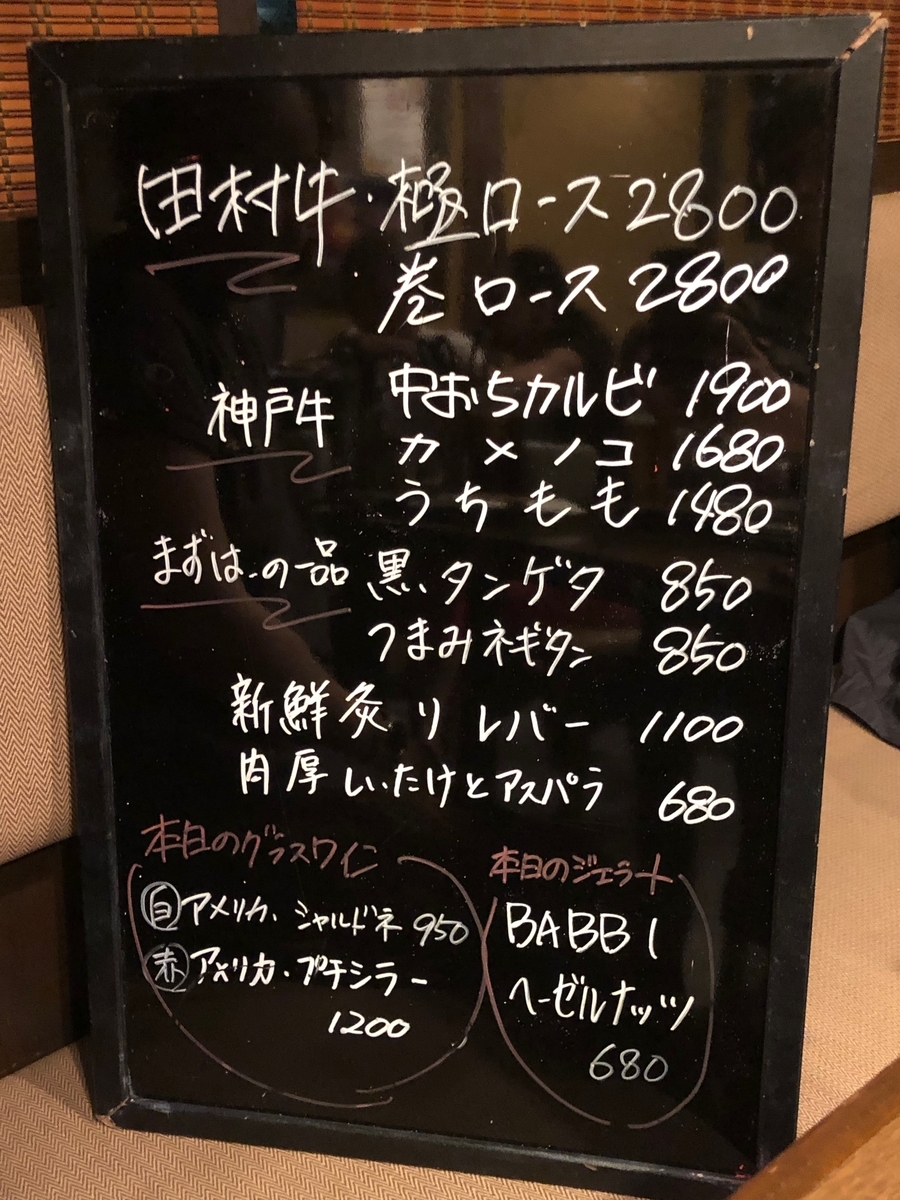 田村牛・極ロース 2800
巻ロース 2800
神戸牛 中おちカルビ 1900
カメノコ 1680
うちもも 1480
まずはの一品 黒タンゲタ 850
つまみネギタン 850
新鮮炙りレバー 1100
肉厚しいたけとアスパラ 680
本日のグラスワイン
白 アメリカ・シャルドネ 950
赤 アメリカ・プチシラー
1200
本日のジェラート
BABBI
ヘーゼルナッツ
680